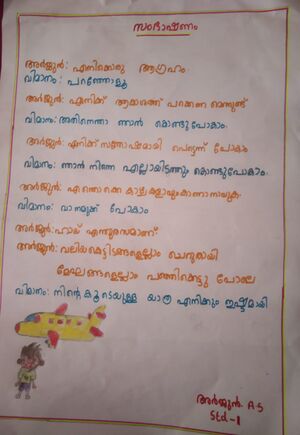 സംഭാഷണം
അർജ്ജുൻ: എനിക്കൊരു ആഗ്രഹം.
വിമാനം: പറഞ്ഞോളൂ
അർജ്ജുൻ: എനിക്ക് ആകാശത്ത് പറക്കണമെന്നുണ്ട്
വിമാനം: അതിനെന്താ ഞാൻ കൊണ്ടുപോകാം.
അർജ്ജുൻ: എനിക്ക് സന്തോഷമായി പെട്ടെന്ന് പോകാം
വിമാനം: ഞാൻ നിന്നെ എല്ലായിടത്തും കൊണ്ടുപോകാം.
അർജ്ജുൻ: എന്തൊക്കെ കാഴ്ചകളായും കാണാനാവുക.
വിമാനം: വാ നമുക്ക് പോകാം
അർജ്ജുൻ: ഹായ് എന്തുരസമാണ്
അർജ്ജുൻ: വലിയകെട്ടിടങ്ങളെല്ലാം ചെറുതായി
മേഘങ്ങളെല്ലാം പഞ്ഞിക്കെട്ടു പോലെ
വിമാനം: നിന്റെ കൂടെയുള്ള യാത്ര എനിക്കും ഇഷ്ടമായി
അർജ്ജുൻ. A.S
Std-1